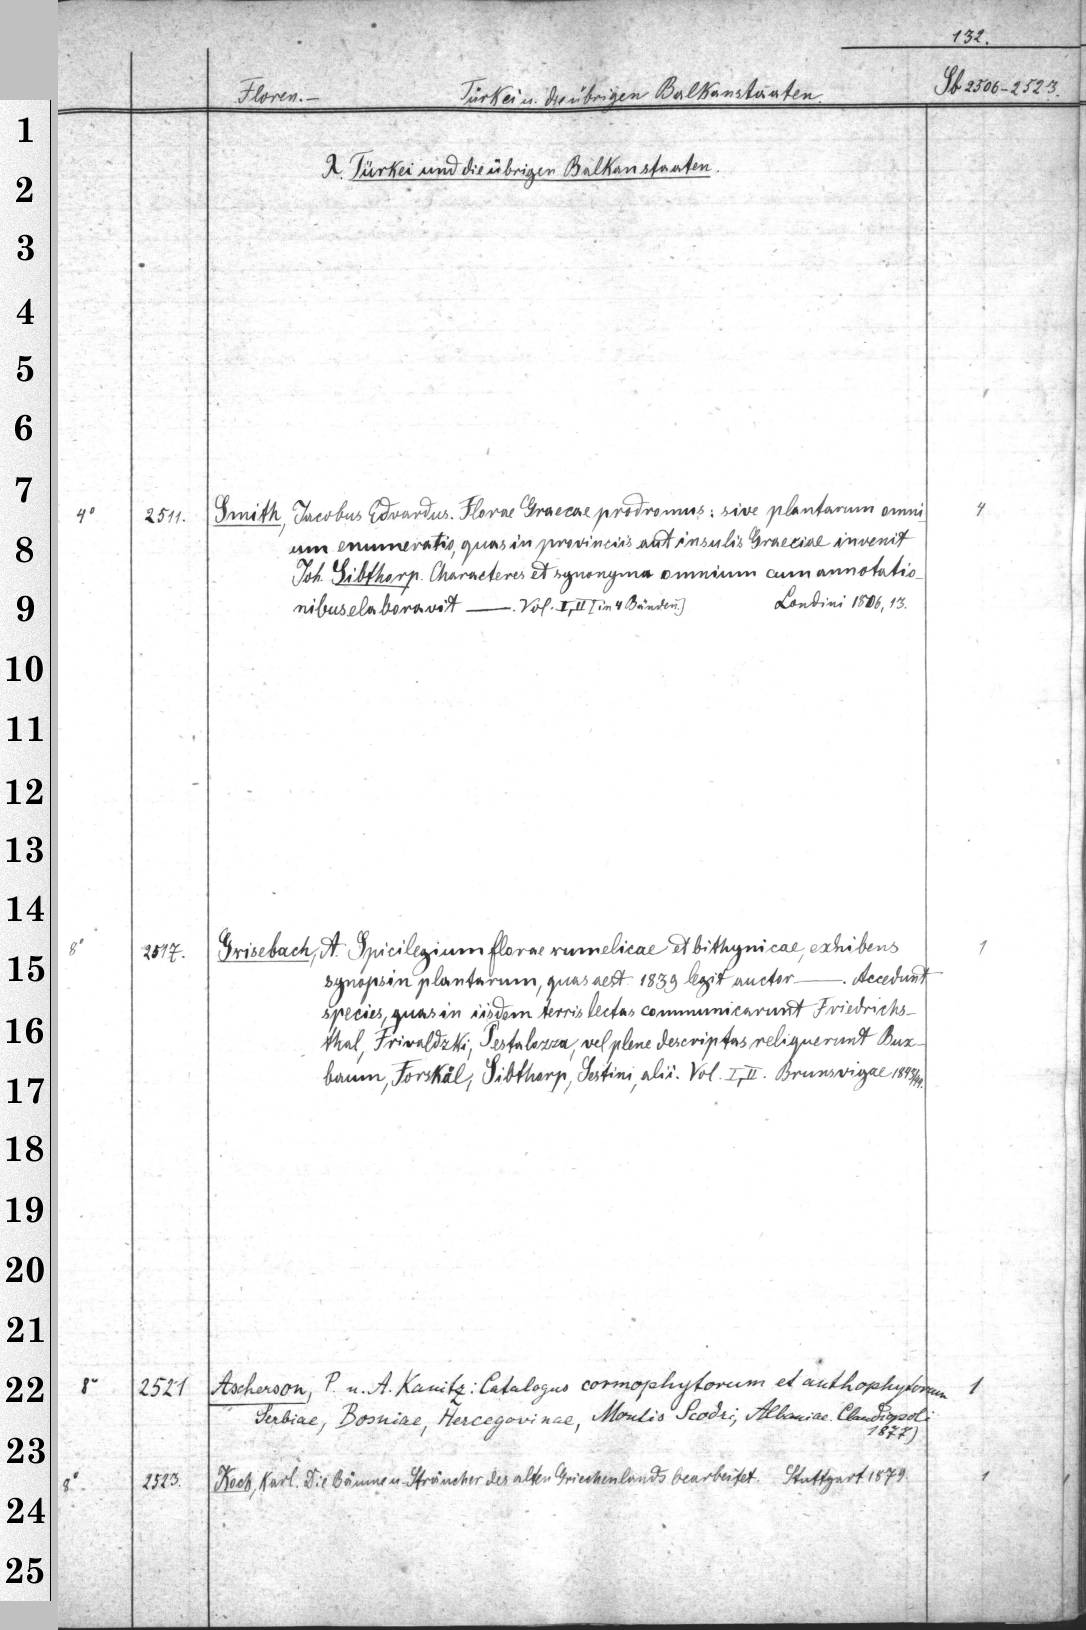 132.
Floren.— Türkei u. die übrigen Balkanstaaten. Sb 2506-2523.
λ. Türkei und die übrigen Balkanstaaten.
4° 2511. Smith, Jacobus Edvardus. Florae Graecae prodromus: sive plantarum omni 4
um enumeratio, quas in provinciis aut insulis Graeciae invenit
Joh. Sibthorp. Characteres et synonyma omnium cum annotatio-
nibus elaboravit —. Vol. I, II [in 4 Bänden.] Londini 1806, 13.
8° 2517. Grisebach, A. Spicilegium florae rumelicae et bithynicae, exhibens 1
synopsin plantarum, quas aest. 1839 legit auctor —. Accedunt
species, quas in iisdem terris lectas communicarunt Friedrichs-
thal, Frivaldzki, Pestalozza, vel plene descriptas reliquerunt Bux-
baum, Forskål, Sibthorp, Sestini, alii. Vol. I, II. Brunsvigae 1843/44.
8° 2521 Ascherson, P. u. A. Kanitz: Catalogus cormophytorum et anthophytorum 1
Serbiae, Bosniae, Hercegovinae, Montis Scodri, Albaniae. Claudiopoli
1877)
8° 2523. Koch, Karl. Die Bäume u. Sträucher des alten Griechenlands bearbeitet. Stuttgart 1879. 1
1
2
3
4
5
6
7
8
9
10
11
12
13
14
15
16
17
18
19
20
21
22
23
24
25